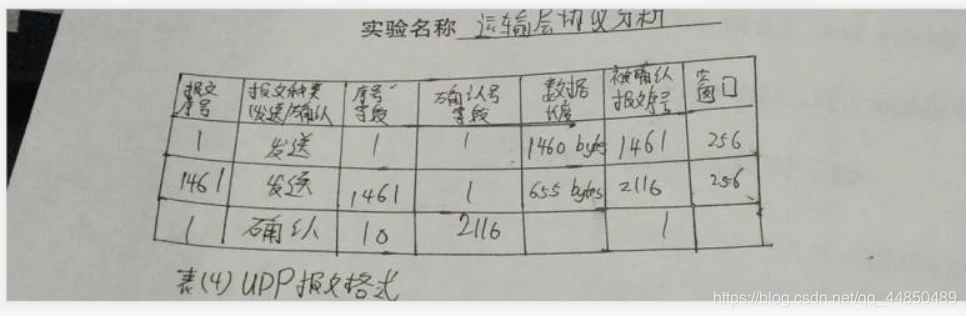 实验名称 运输层协议分析
报文序号 报文种类(发送/确认) 序号字段 确认号字段 数据长度 被确认报文序号 窗口
1 发送 1 1 1460 byte 1461 256
1461 发送 1461 1 655 bytes 2116 256
1 确认 10 2116 1
表(4) UDP报文格式
https://blog.csdn.net/qq_44850489